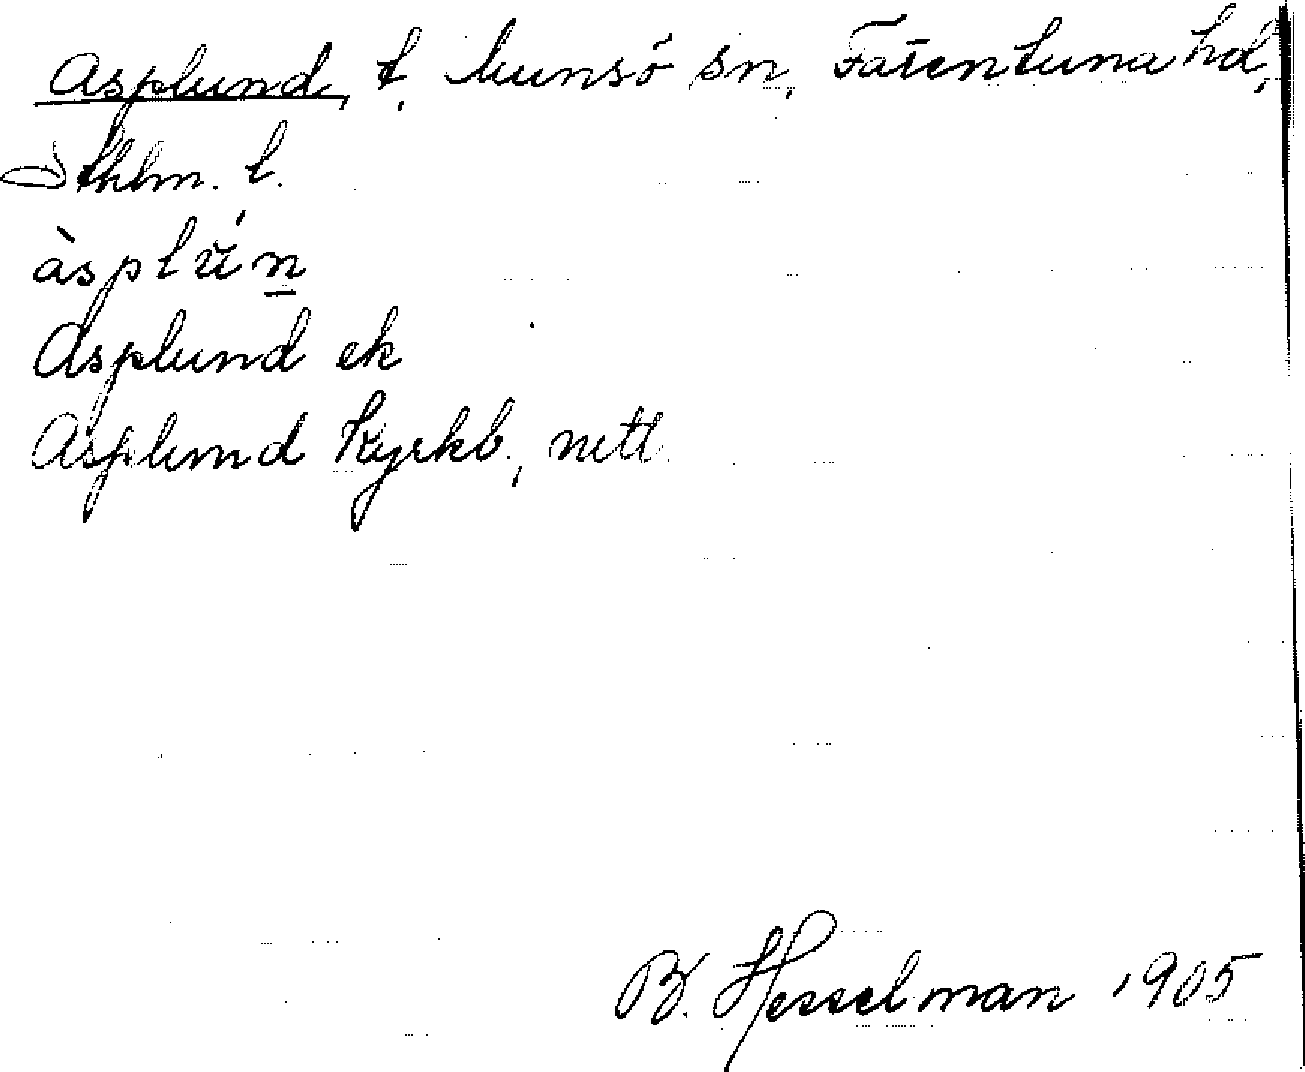 Asplund, t. Munsö sn, Färentuna hd,
Sthlm. l.
àsplǘn
Asplund ek
Asplund Kyrkb., nett.
B. Hesselman 1905